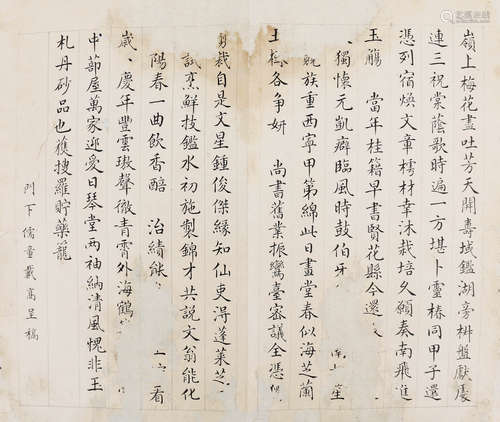 嶺上梅花盡吐芳天開壽域鑑湖旁桝盤獻處
連三祝棠蔭歌時遍一方堪卜靈椿同甲子還
憑列宿煥文章樗材幸沐栽培久願奏南飛進
玉觴 當年桂籍早書賢花縣今還
獨懷元凱癖臨風時鼓伯牙 笙
既族重西寧甲第綿此日畫堂春似海芝蘭
玉樹各争妍 尚書舊業振鸞臺審議全憑
剪裁自是文星鍾俊傑緣知仙吏得蓬萊芝
試烹鮮技鑑水初施製錦才共説文翁能化
陽春一曲飲香醅 治績能 看
歲慶年豐雲璈聲徹青霄外海鶴
中蔀屋萬家迎愛日琴堂兩袖納清風愧非玉
札丹砂品也獲搜羅貯藥籠
門下儒童戴高呈稿